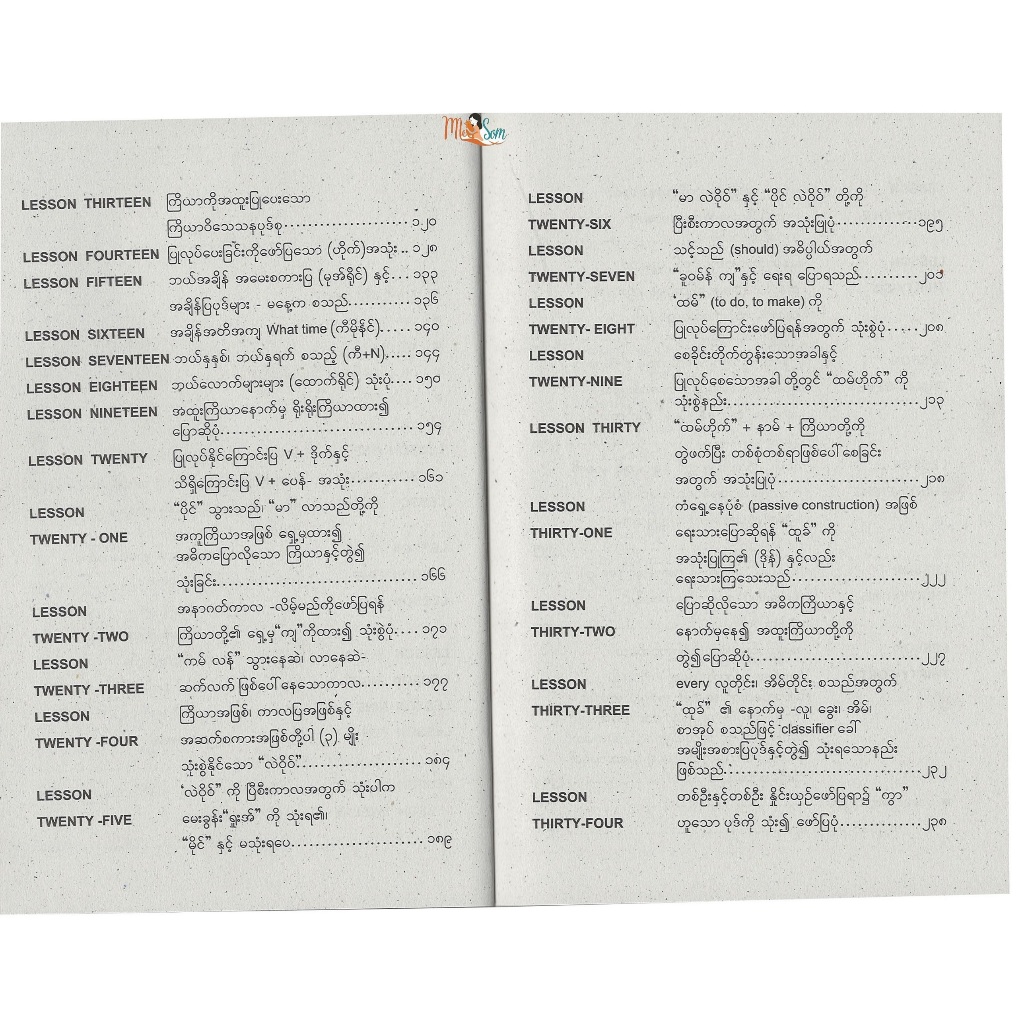 Me Som
LESSON THIRTEEN ကြိယာကိုအထူးပြုပေးသော
ကြိယာဝိသေသနပုဒ်စု.................... ၁၂၀
LESSON FOURTEEN ပြုလုပ်ပေးခြင်းကိုဖော်ပြသော (ဟိုက်)အသုံး .. ၁၂၈
LESSON FIFTEEN ဘယ်အချိန် အမေးစကားပြ (မုအ်ရိုင်) နှင့်... ၁၃၃
အချိန်ပြပုဒ်များ - မနေ့က စသည်........... ၁၃၆
LESSON SIXTEEN အချိန်အတိအကျ What time (ကီမိုန်င်)..... ၁၄၀
LESSON SEVENTEEN ဘယ်နှနှစ်၊ ဘယ်နှရက် စသည့် (ကီ+N).... ၁၄၄
LESSON EIGHTEEN ဘယ်လောက်များများ (ထောက်ရိုင်) သုံးပုံ.... ၁၅၀
LESSON NINETEEN အထူးကြိယာနောက်မှ ရိုးရိုးကြိယာထား၍
ပြောဆိုပုံ.................................. ၁၅၄
LESSON TWENTY ပြုလုပ်နိုင်ကြောင်းပြ V + ဒိုက်နှင့်
သိရှိကြောင်းပြ V + ပေန်- အသုံး........... ၁၆၁
LESSON “ပိုင်” သွားသည်၊ “မာ” လာသည်တို့ကို
TWENTY - ONE အကူကြိယာအဖြစ် ရှေ့မှထား၍
အဓိကပြောလိုသော ကြိယာနှင့်တွဲ၍
သုံးခြင်း.................................. ၁၆၆
LESSON အနာဂတ်ကာလ -လိမ့်မည်ကိုဖော်ပြရန်
TWENTY -TWO ကြိယာတို့၏ ရှေ့မှ“ကျ”ကိုထား၍ သုံးစွဲပုံ.... ၁၇၁
LESSON “ကမ် လန်” သွားနေဆဲ၊ လာနေဆဲ-
TWENTY -THREE ဆက်လက် ဖြစ်ပေါ်နေသောကာလ.......... ၁၇၇
LESSON ကြိယာအဖြစ်၊ ကာလပြအဖြစ်နှင့်
TWENTY -FOUR အဆက်စကားအဖြစ်တို့ပါ (၃) မျိုး
သုံးစွဲနိုင်သော “လဲဝိုဝ်”.................... ၁၈၄
LESSON ‘လဲဝိုဝ်” ကို ပြီစီးကာလအတွက် သုံးပါက
TWENTY -FIVE မေးခွန်း“ရှူးအ်” ကို သုံးရ၏၊
“မိုင်” နှင့် မသုံးရပေ...................... ၁၈၉
LESSON “မာ လဲဝိုဝ်” နှင့် “ပိုင် လဲဝိုဝ်” တို့ကို
TWENTY-SIX ပြီးစီးကာလအတွက် အသုံးပြုပုံ..............၁၉၅
LESSON သင့်သည် (should) အဓိပ္ပါယ်အတွက်
TWENTY-SEVEN “ခူဝမ်န် ကျ”နှင့် ရေးရ ပြောရသည်..........၂၀၁
LESSON ‘ထမ်” (to do, to make) ကို
TWENTY- EIGHT ပြုလုပ်ကြောင်းဖော်ပြရန်အတွက် သုံးစွဲပုံ.....၂၀၈
LESSON စေခိုင်းတိုက်တွန်းသောအခါနှင့်
TWENTY-NINE ပြုလုပ်စေသောအခါ တို့တွင် “ထမ်ဟိုက်” ကို
သုံးစွဲနည်း..................................၂၁၃
LESSON THIRTY “ထမ်ဟိုက်” + နာမ် + ကြိယာတို့ကို
တွဲဖက်ပြီး တစ်စုံတစ်ရာဖြစ်ပေါ်စေခြင်း
အတွက် အသုံးပြုပုံ.........................၂၁၈
LESSON ကံရှေ့နေပုံစံ (passive construction) အဖြစ်
THIRTY-ONE ရေးသားပြောဆိုရန် “ထူခ်” ကို
အသုံးပြုကြ၏ (ဒိုန်) နှင့်လည်း
ရေးသားကြသေးသည်......................၂၂၂
LESSON ပြောဆိုလိုသော အဓိကကြိယာနှင့်
THIRTY-TWO နောက်မှနေ၍ အထူးကြိယာတို့ကို
တွဲ၍ပြောဆိုပုံ.............................၂၂၇
LESSON every လူတိုင်း၊ အိမ်တိုင်း စသည်အတွက်
THIRTY-THREE “ထုခ်” ၏ နောက်မှ -လူ၊ ခွေး၊ အိမ်၊
စာအုပ် စသည်ဖြင့် classifier ခေါ်
အမျိုးအစားပြပုဒ်နှင့်တွဲ၍ သုံးရသောနည်း
ဖြစ်သည်..................................၂၃၂
LESSON တစ်ဦးနှင့်တစ်ဦး နှိုင်းယှဉ်ဖော်ပြရာ၌ “ကွာ”
THIRTY-FOUR ဟူသော ပုဒ်ကို သုံး၍ ဖော်ပြပုံ..............၂၃၈